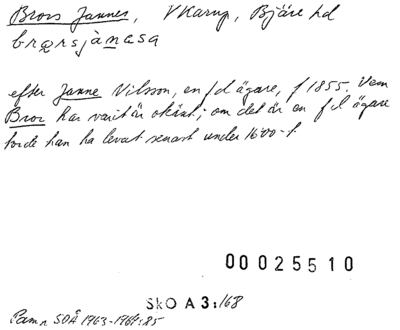 Brors Jannes, V Karup, Bjäre hd
brørsjànəsa
efter Janne Nilsson, en f d ägare, f 1855. Vem
Bror har varit är okänt; om det är en f d ägare
torde han ha levat senast under 1600-t.
00025510
SkO A3:168
Pamn SOÅ 1963-1964:85